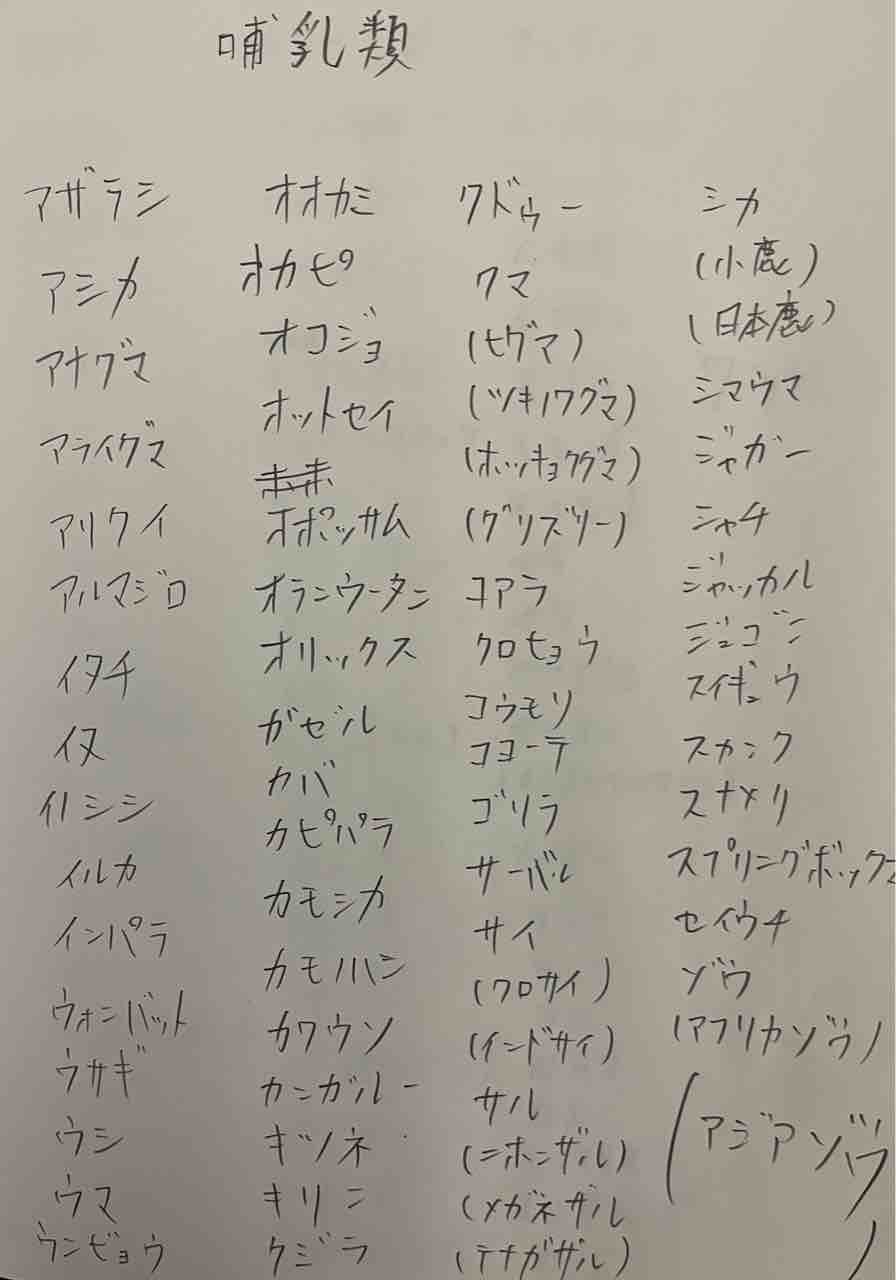 哺乳類
アザラシ
アシカ
アナグマ
アライグマ
アリクイ
アルマジロ
イタチ
イヌ
イノシシ
イルカ
インパラ
ウォンバット
ウサギ
ウシ
ウマ
ウンピョウ
オオカミ
オカピ
オコジョ
オットセイ
オポッサム
オランウータン
オリックス
ガゼル
カバ
カピパラ
カモシカ
カモノハシ
カワウソ
カンガルー
キツネ
キリン
クジラ
クドゥー
クマ
(ヒグマ)
(ツキノワグマ)
(ホッキョクグマ)
(グリズリー)
コアラ
クロヒョウ
コウモリ
コヨーテ
ゴリラ
サーバル
サイ
(クロサイ)
(インドサイ)
サル
(ニホンザル)
(メガネザル
(テナガザル)
シカ
(小鹿)
(日本鹿)
シマウマ
ジャガー
シャチ
ジャッカル
ジュゴン
スイギュウ
スカンク
スナメリ
スプリングボックス
セイウチ
ゾウ
(アフリカゾウ)
(アジアゾウ)